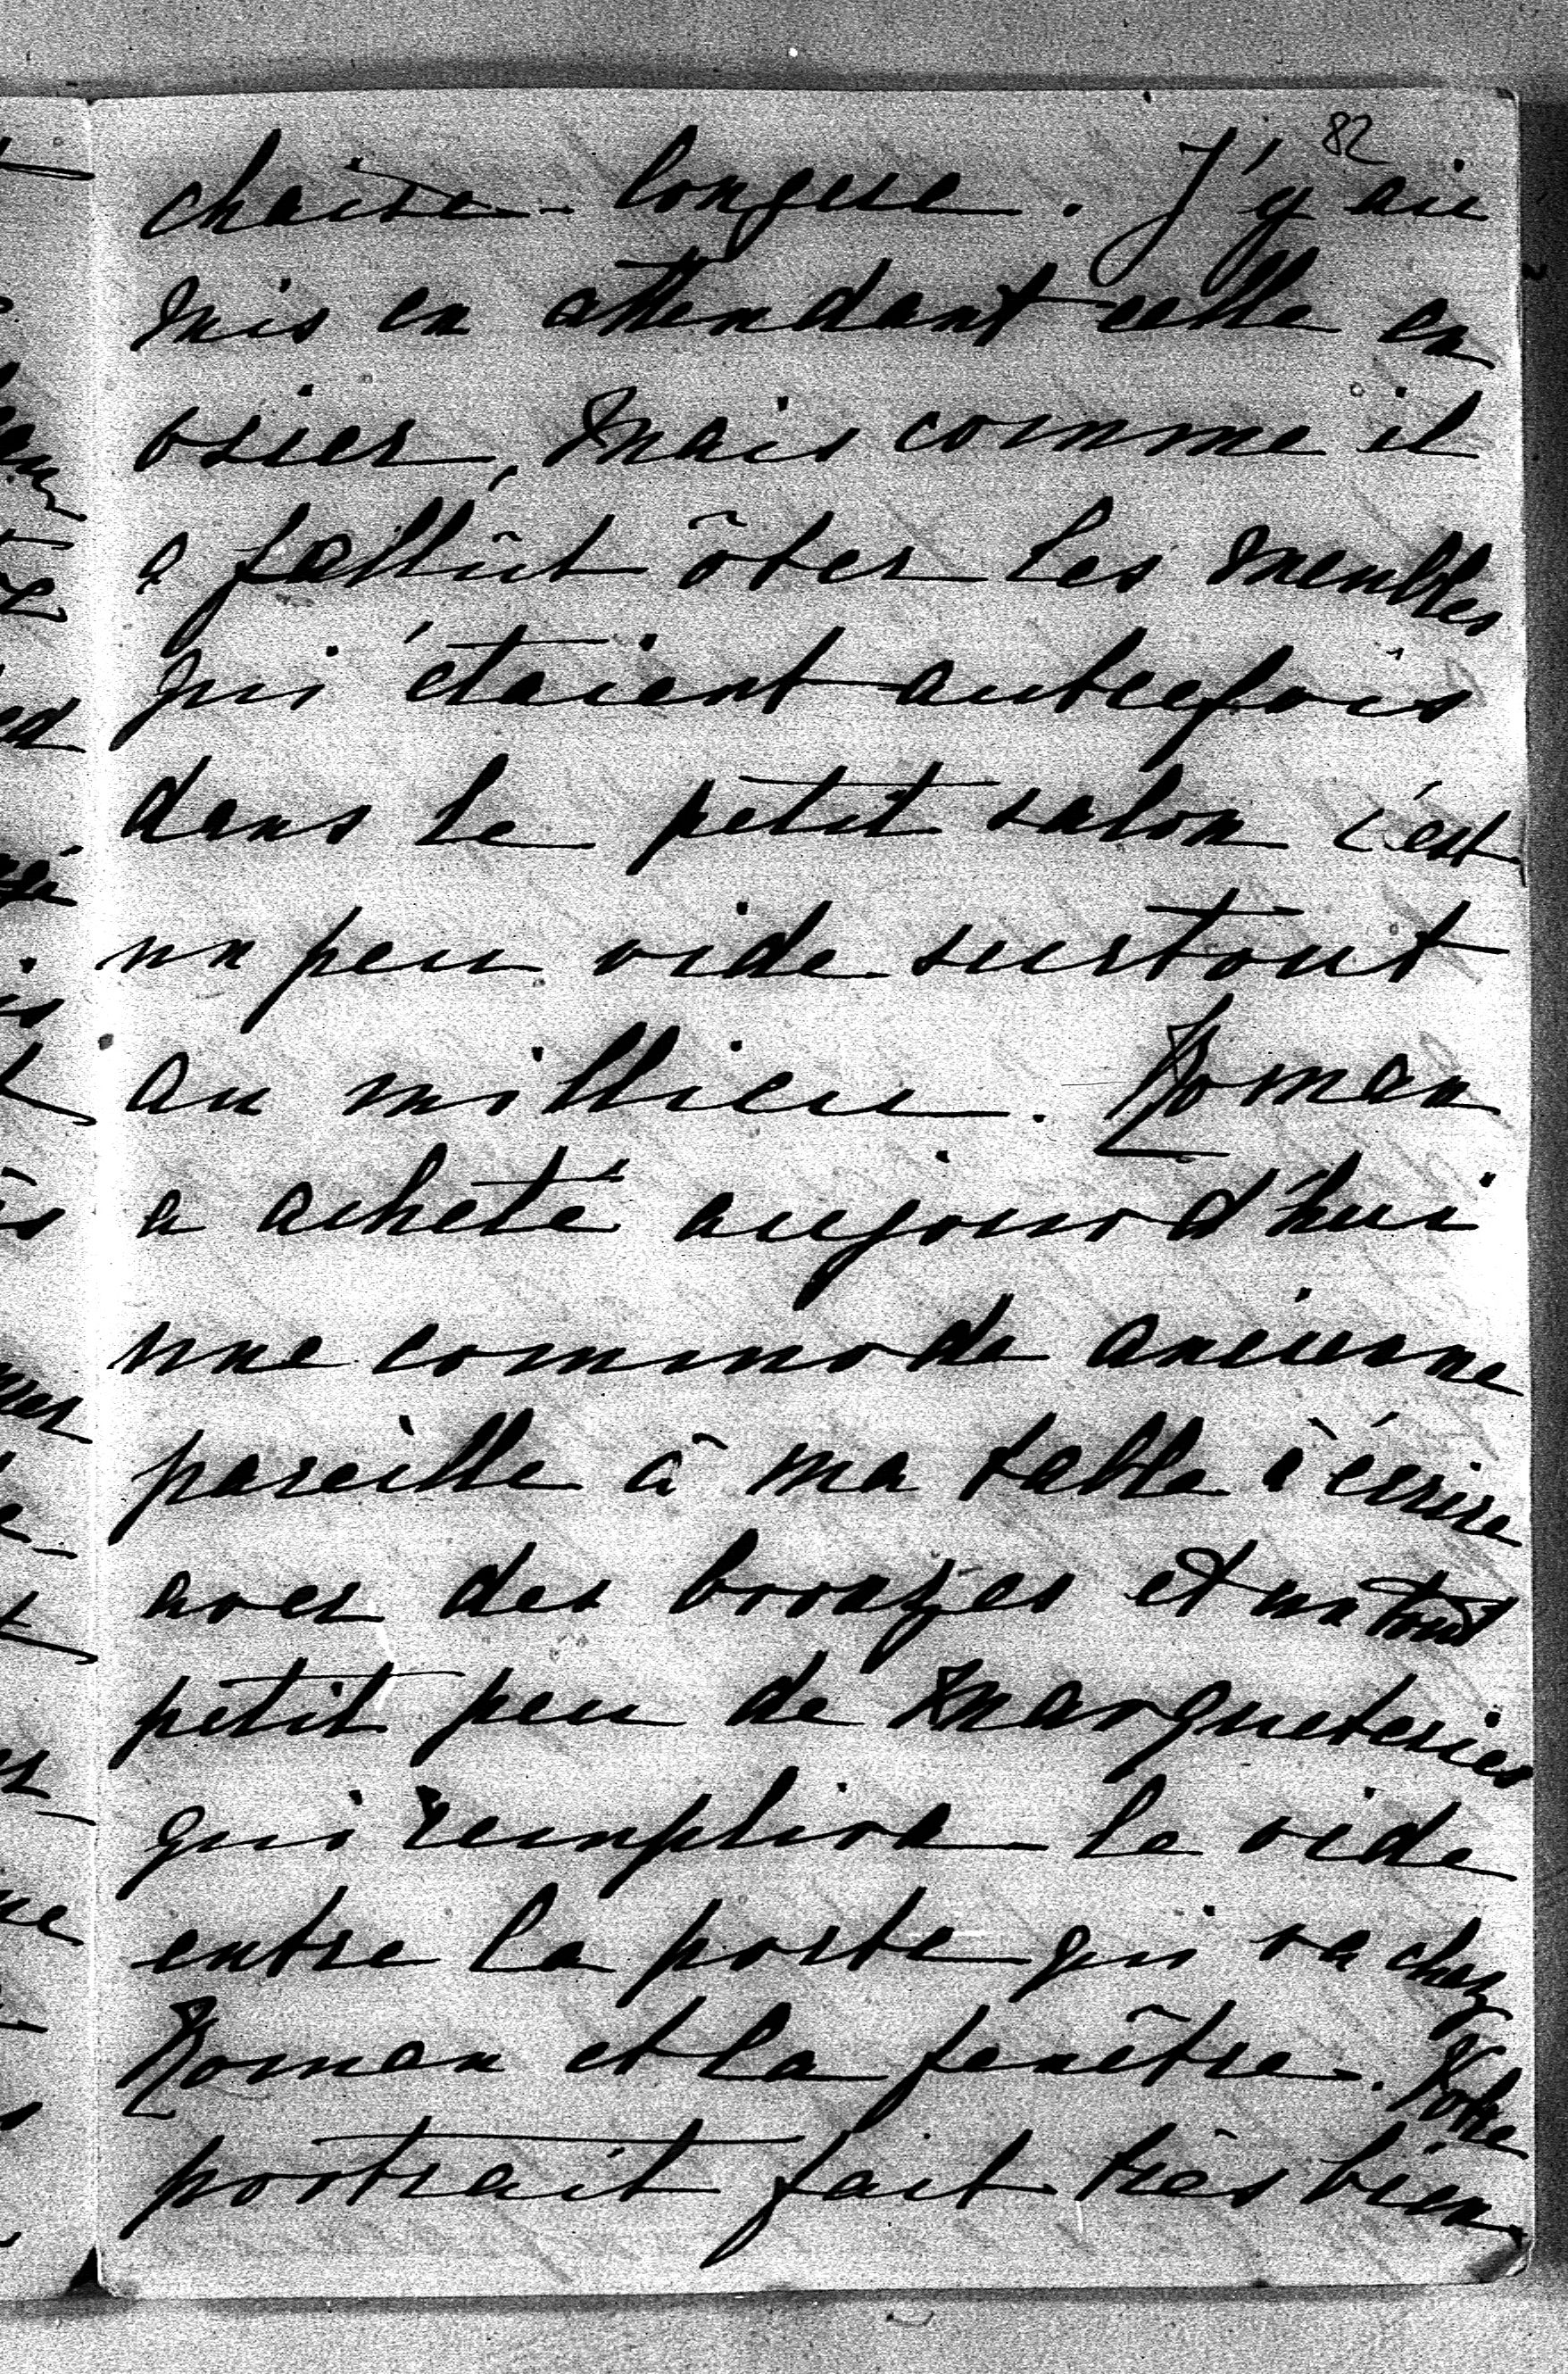 82
chaise-longue. J'y ai
mis en attendant celle en
osier, mais comme il
a fallût ôter les meubles
qui étaient autrefois
dans le petit salon c'est
un peu vide surtout
au millieu. Roman
a acheté aujourd'hui
une commode ancienne
pareille à ma table à écrire
avec des bronzes et un tout
petit peu de marqueteries
qui remplira le vide
entre la porte qui va chez
Roman et la fenêtre. Votre
portrait fait très bien